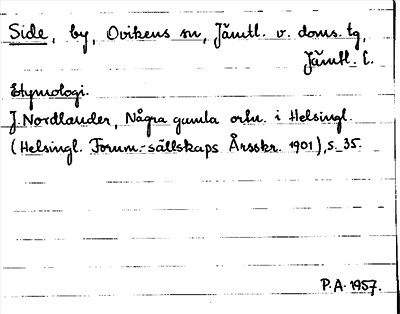 Side, by, Ovikens sn, Jämtl. v. doms. tg,
Jämtl. l.
Etymologi.
J. Nordlander, Några gamla ortn. i Helsingl.
(Helsingl. Fornm.-sällskaps Årsskr. 1901), s. 35.
P.A. 1957.